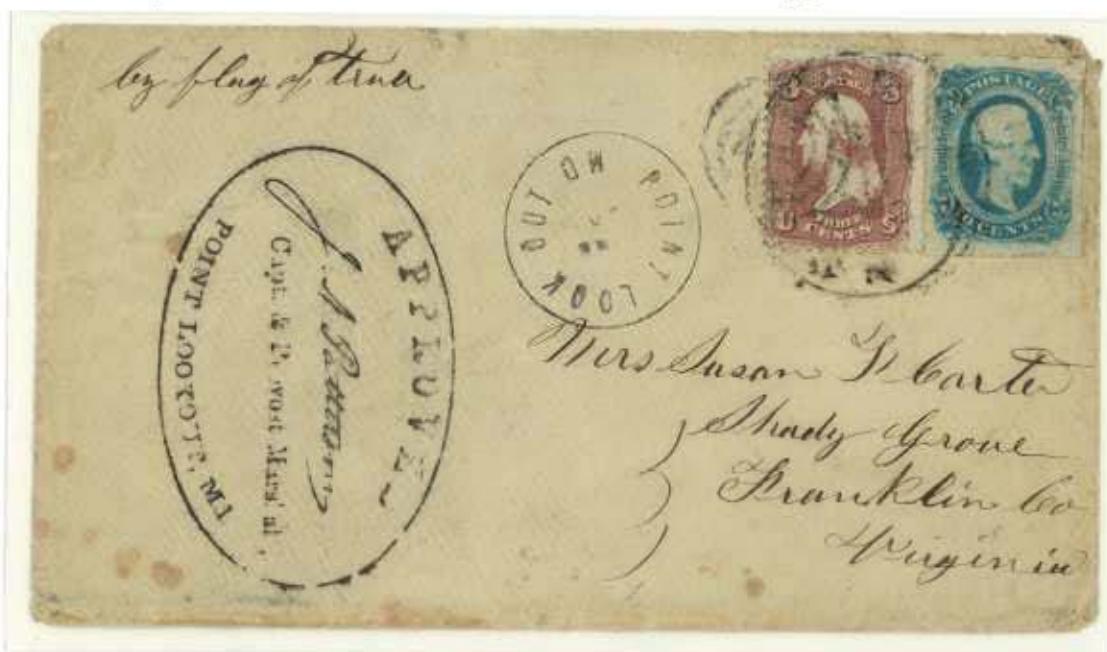 by flag of truce
APPROVED
J. N. Patterson
Capt. & Provost Marshal.
POINT LOOKOUT, MD
POINT LOOK OUT MD
POSTAGE
THREE
CENTS
POSTAGE
TEN CENTS
Mrs Susan F Carter
Shady Grove
Franklin Co
Virginia